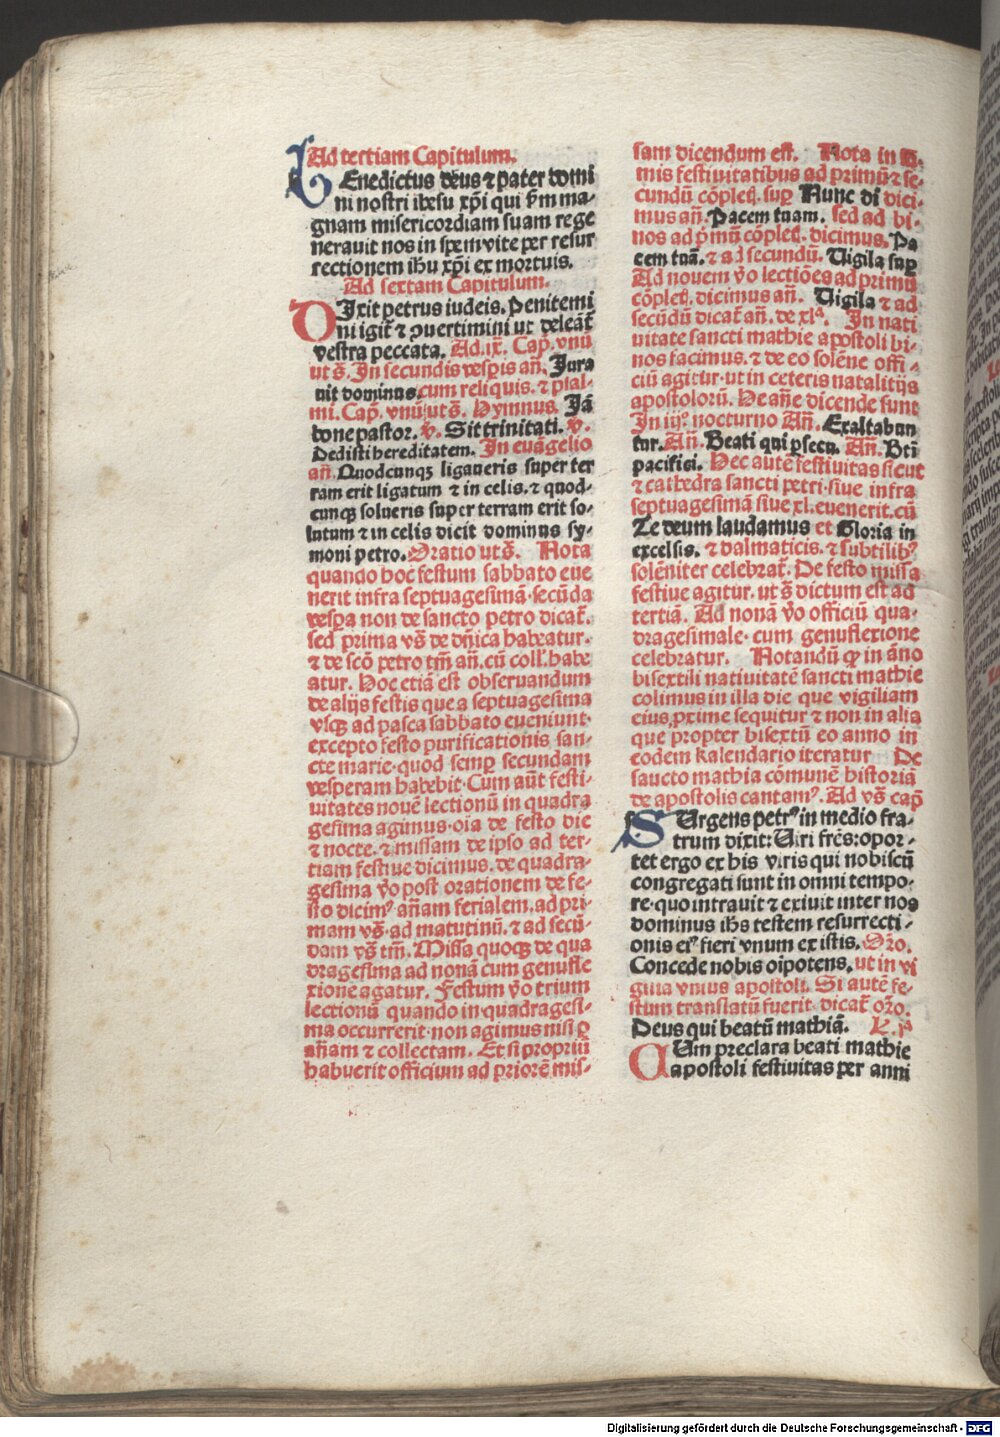 Ad tertiam Capitulum.
BEnedictus deus ⁊ pater domi
ni nostri ihesu xp̄i qui s̄m ma-
gnam misericordiam suam rege
nerauit nos in spem vite per resur
rectionem ihū xp̄i ex mortuis.
Ad sextam Capitulum.
DIxit petrus iudeis. Penitemi
ni igit̄ ⁊ ꝯuertimini ut deleāt̄
vestra peccata. Ad .ix. Cap̄. vnū
ut s̄. In secundis vesp̄is an̄. Jura
uit dominus. cum reliquis. ⁊ psal-
mi. Cap̄. vnū ut s̄. Hymnus. Iā
bone pastor. v̄. Sit trinitati. v̄.
Dedisti hereditatem. In euāgelio
an̄. Quodcunqꝫ ligaueris super ter
ram erit ligatum ⁊ in celis. ⁊ quod-
cunqꝫ solueris super terram erit so-
lutum ⁊ in celis dicit dominus sy-
moni petro. Oratio ut s̄. Nota
quando hoc festum sabbato eue
nerit infra septuagesimā· secūda
vesp̄a non de sancto petro dicat̄.
sed prima vs̄ de dn̄ica habeatur.
⁊ de scō petro tm̄ an̄. cū coll̄. habe
atur. Hoc etiā est obseruandum
de alijs festis que a septuagesima
vsqꝫ ad pasca sabbato eueniunt·
excepto festo purificationis san-
cte marie· quod semp̄ secundam
vesperam habebit· Cum aūt festi-
uitates nouē lectionū in quadra
gesima agimus· oīa de festo die
⁊ nocte. ⁊ missam de ipso ad ter-
tiam festiue dicimus. de quadra-
gesima v̄o post orationem de fe-
sto dicim⁹ an̄am ferialem. ad pri-
mam vs̄· ad matutinū. ⁊ ad secū-
dam vs̄ tm̄. Missa quoqꝫ de qua
dragesima ad nonā cum genufle
xione agatur. Festum v̄o trium
lectionū quando in quadragesi-
ma occurrerit· non agimus nisi ꝑ
an̄am ⁊ collectam. Et si propriū
habuerit officium ad priorē mis-
sam dicendum est. Nota in
mis festiuitatibus ad primū ⁊ se-
cundū cōplet̄. sup̄ Nunc di dici-
mus an̄. Pacem tuam. sed ad bi-
nos ad p̄mū cōplet̄. dicimus. Pa
cem tuā. ⁊ ad secundū. Vigila sup̄
Ad nouem v̄o lectiōes ad primū
cōplet̄. dicimus an̄. Vigila ⁊ ad
secūdū dicat̄ an̄. de xlᵃ. In nati
uitate sancti mathie apostoli bi-
nos facimus. ⁊ de eo solēne offi-
ciū agitur· ut in ceteris natalitijs
apostolorū. He an̄e dicende sunt
In iijº nocturno An̄. Exaltabun
tur. An̄. Beati qui ꝑsecu. An̄. Bt̄i
pacifici. Hec autē festiuitas sicut
⁊ cathedra sancti petri· siue infra
septuagesimā siue xl. euenerit. cū
Te deum laudamus et Gloria in
excelsis. ⁊ dalmaticis. ⁊ subtilib⁹
solēniter celebrat̄. De festo missa
festiue agitur. ut s̄ dictum est ad
tertiā. Ad nonā v̄o officiū qua-
dragesimale· cum genuflexione
celebratur. Notandū ꝙ in āno
bisextili natiuitatē sancti mathie
colimus in illa die que vigiliam
eius, ꝓxime sequitur ⁊ non in alia
que propter bisextū eo anno in
eodem kalendario iteratur De
sancto mathia cōmunē historiā
de apostolis cantam⁹. Ad vs̄ cap̄
SUrgens petr⁹ in medio fra-
trum dixit: Viri frēs: opor-
tet ergo ex his viris qui nobiscū
congregati sunt in omni tempo-
re· quo intrauit ⁊ exiuit inter nos
dominus ih̄s testem resurrecti-
onis ei⁹ fieri vnum ex istis. Or̄o.
Concede nobis oīpotens. ut in vi
gilia vnius apostoli. Si autē fe-
stum translatū fuerit· dicat̄ or̄o.
Deus qui beatū mathiā. L. jᵃ
CUm preclara beati mathie
apostoli festiuitas per anni
Digitalisierung gefördert durch die Deutsche Forschungsgemeinschaft - DFG